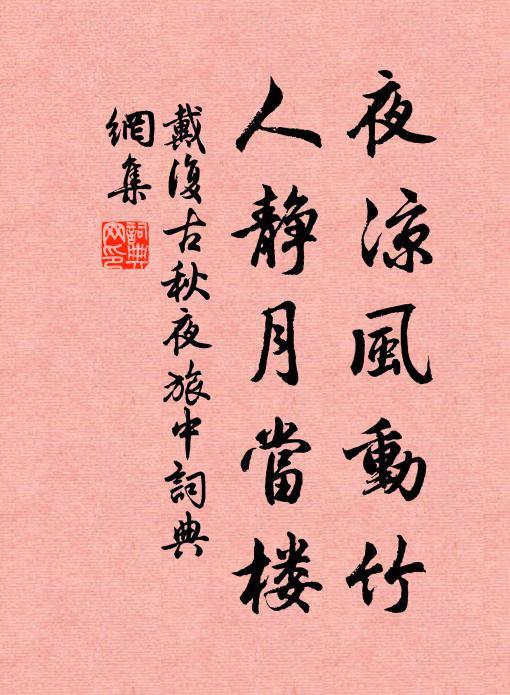 夜涼風動竹
人静月當楼
戴復古秋夜旅中詞典
網集
詞典网印